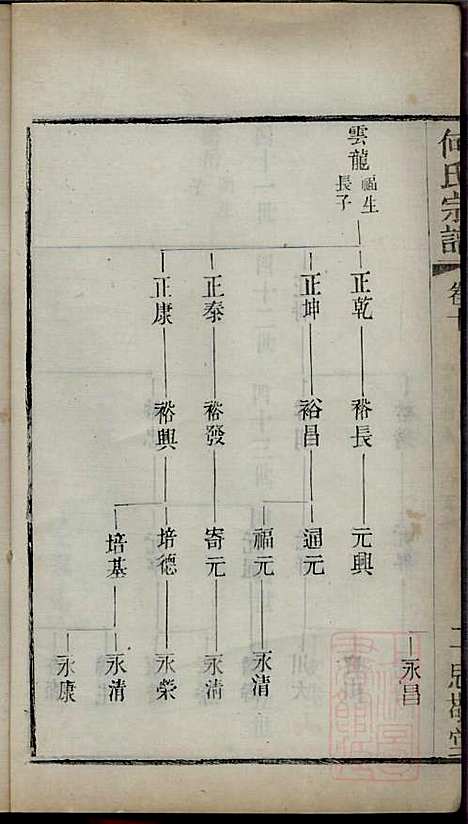 何氏宗譜
卷十
雲龍 福生長子
正乾
正坤
正泰
正康
裕長
裕昌
裕發
裕興
元興
通元
福元
寄元
培德
培基
永昌
永清
永清
永榮
永清
永康